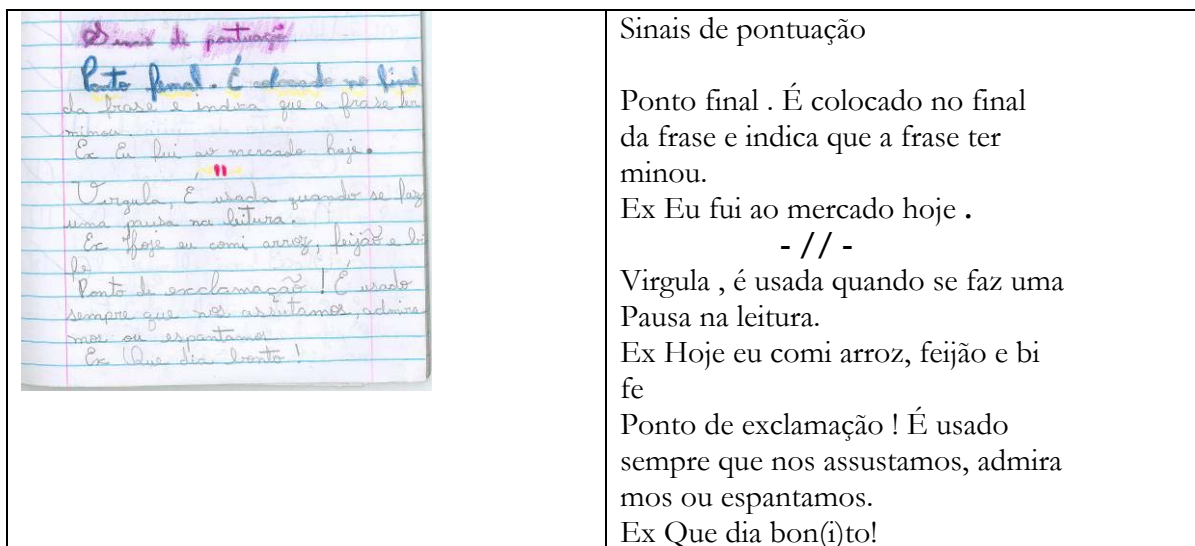 Sinais de pontuação
Ponto final . É colocado no final
da frase e indica que a frase ter
minou.
Ex Eu fui ao mercado hoje .
, "
Virgula, É usada quando se faz
uma pausa na leitura.
Ex Hoje eu comi arroz, feijão e bi
fe
Ponto de exclamação ! É usado
sempre que nos assutamos, admira
mos ou espantamos
Ex Que dia bonto !
Sinais de pontuação
Ponto final . É colocado no final
da frase e indica que a frase ter
minou.
Ex Eu fui ao mercado hoje .
- // -
Virgula , é usada quando se faz uma
Pausa na leitura.
Ex Hoje eu comi arroz, feijão e bi
fe
Ponto de exclamação ! É usado
sempre que nos assustamos, admira
mos ou espantamos.
Ex Que dia bon(i)to!